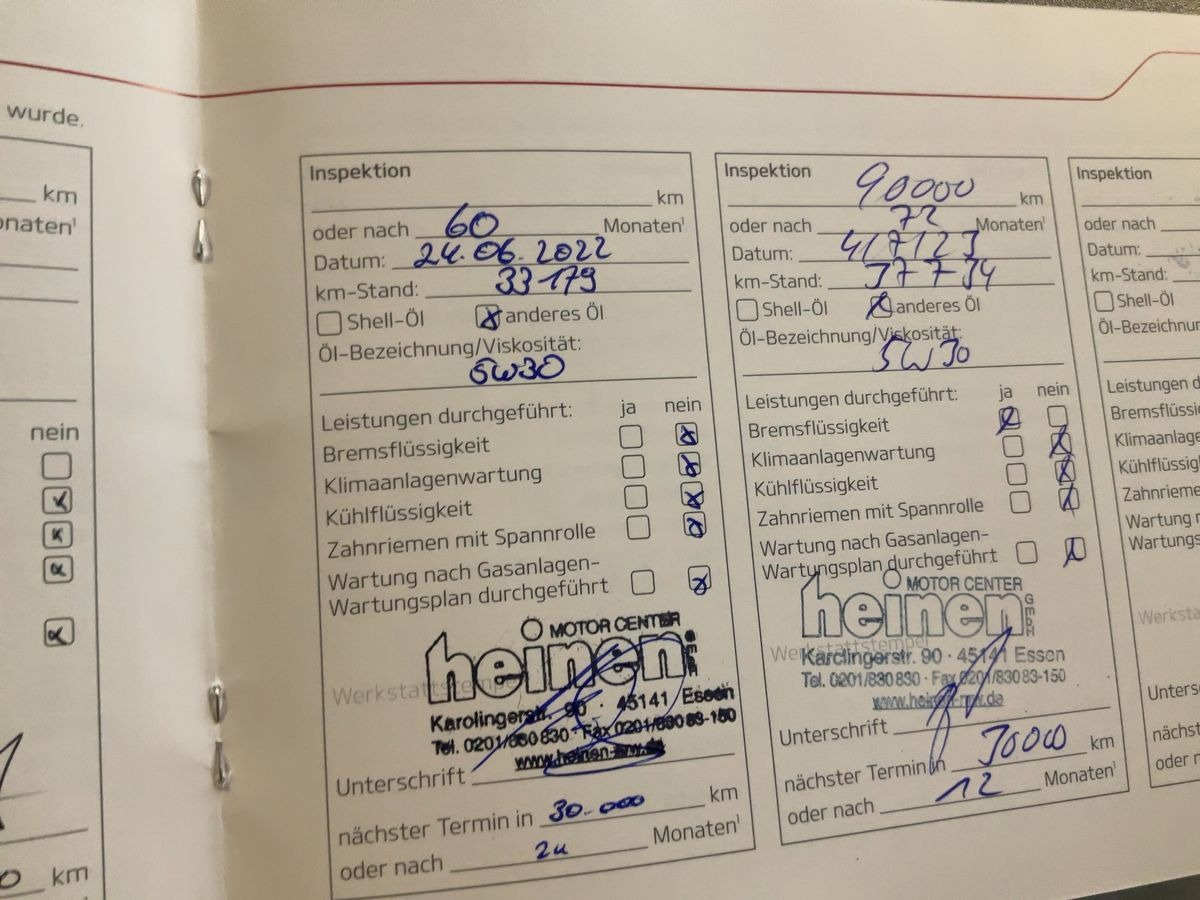 wurde.
km
onaten¹
nein
km
Inspektion
km
oder nach 60 Monaten¹
Datum: 24.06.2022
km-Stand: 33179
Shell-Öl x anderes Öl
Öl-Bezeichnung/Viskosität:
5W30
Leistungen durchgeführt: ja nein
Bremsflüssigkeit x
Klimaanlagenwartung x
Kühlflüssigkeit x
Zahnriemen mit Spannrolle x
Wartung nach Gasanlagen-
Wartungsplan durchgeführt x
MOTOR CENTER
heinen GmbH
Werkstattstempel
Karolingerstr. 90 · 45141 Essen
Tel. 0201/830 830 · Fax 0201/830 83-150
www.heinen-nrw.de
Unterschrift
nächster Termin in 30.000 km
oder nach 24 Monaten¹
Inspektion
90000 km
oder nach 72 Monaten¹
Datum: 4/7/23
km-Stand: 37734
Shell-Öl x anderes Öl
Öl-Bezeichnung/Viskosität:
5W30
Leistungen durchgeführt: ja nein
Bremsflüssigkeit x
Klimaanlagenwartung x
Kühlflüssigkeit x
Zahnriemen mit Spannrolle x
Wartung nach Gasanlagen-
Wartungsplan durchgeführt x
MOTOR CENTER
heinen GmbH
Werkstattstempel
Karolingerstr. 90 · 45141 Essen
Tel. 0201/830 830 · Fax 0201/830 83-150
www.heinen-nrw.de
Unterschrift
nächster Termin in 30000 km
oder nach 12 Monaten¹
Inspektion
oder nach
Datum:
km-Stand:
Shell-Öl
Öl-Bezeichnung/
Leistungen d
Bremsflüssig
Klimaanlage
Kühlflüssig
Zahnriemen
Wartung n
Wartungs
Werkstatts
Unters
nächst
oder n